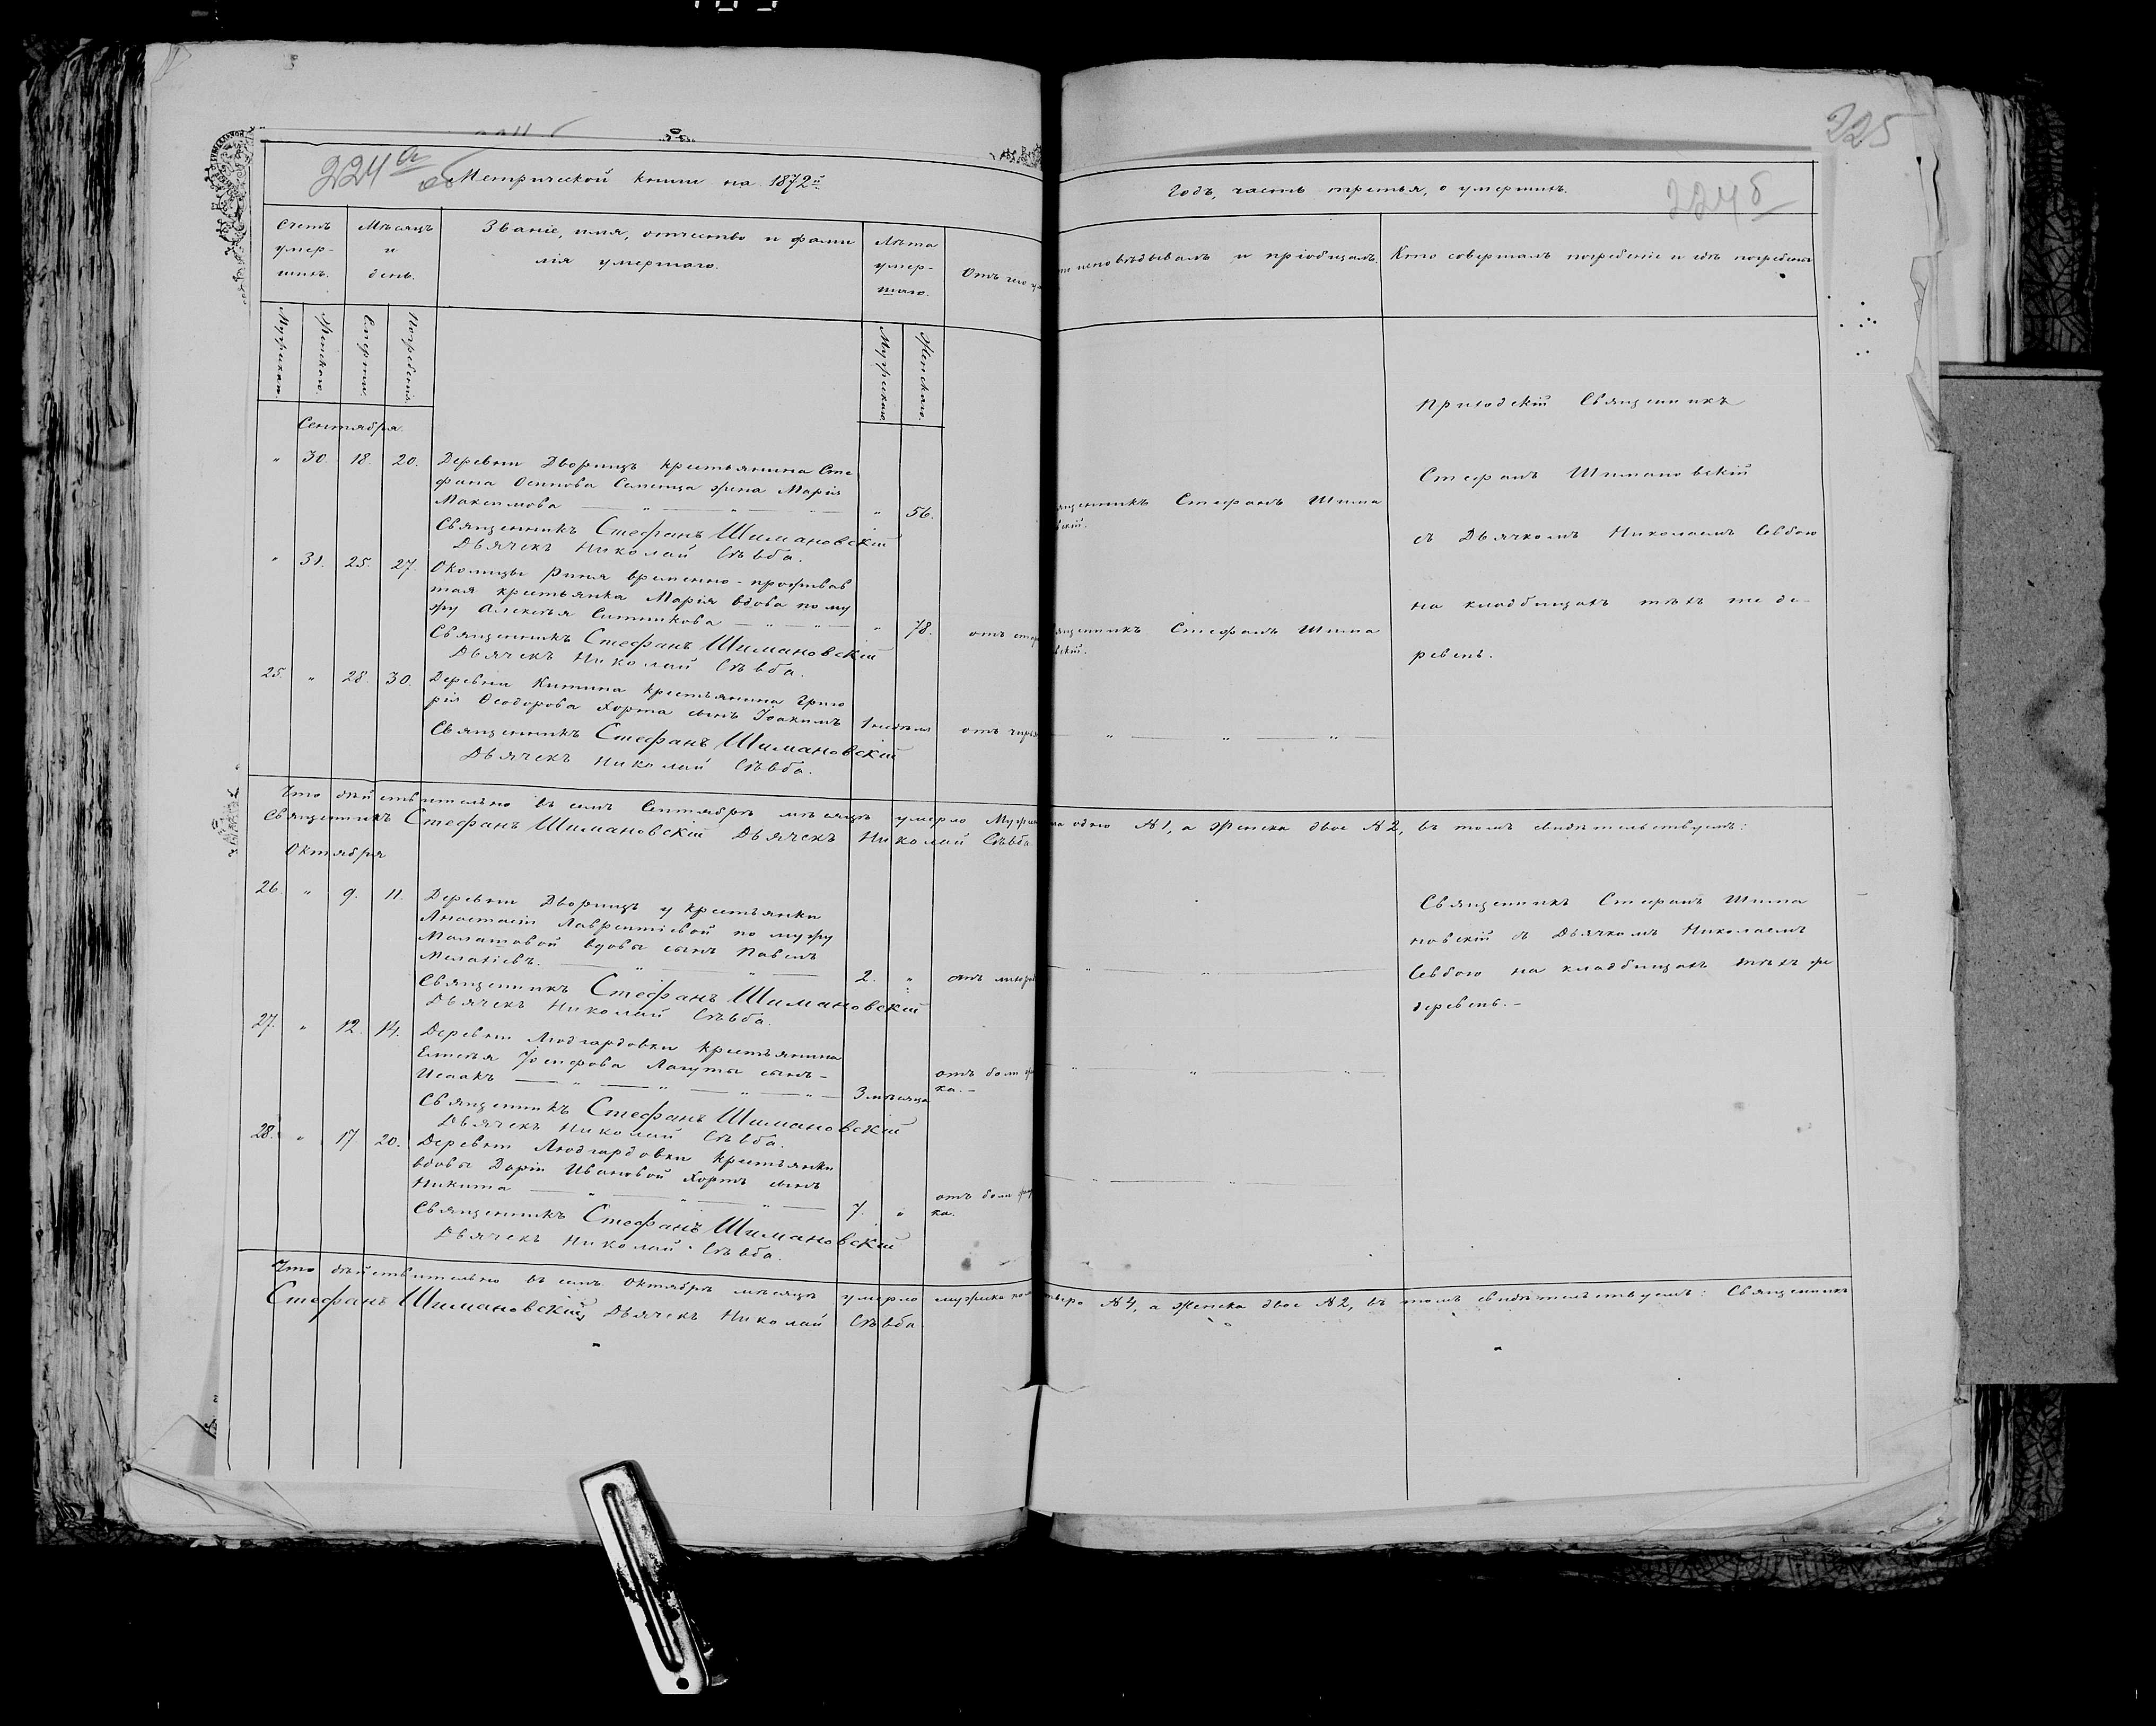 225
224 а
об
224 б
Метрической книги на 1872й
Годъ, часть третья, о умершихъ.
Счетъ умер-шихъ.
Мѣсяцъ и день.
Званіе, имя, отчество и фами
лія умершаго.
Лѣта умер-шаго.
Отъ чего
исповѣдывалъ и пріобщалъ.
Кто совершалъ погребеніе и гдѣ погребены
Мужскаго.
Женскаго.
Смерти.
Погребенія.
Мужескаго.
Женскаго.
Сентября.
" 30. 18. 20.
Деревни Дворищъ крестьянина Сте
фана Осипова Семенца жена Марія
Максимова — " — " — " 56.
Священникъ Стефанъ Шимановскій
Дьячекъ Николай Сѣвба.
" 31. 25. 27.
Околицы Рипя временно-прожывав
шая крестьянка Марія вдова по му
жу Алексѣя Ситникова — " — " — " 78.
Священникъ Стефанъ Шимановскій
Дьячекъ Николай Сѣвба.
25. " 28. 30.
Деревни Китина крестьянина Григо
рія Ѳеодорова Хорта сынъ Іоакимъ 1 недѣля
Священникъ Стефанъ Шимановскій
Дьячекъ Николай Сѣвба.
Священникъ Стефанъ Шима
вскій.
Священникъ Стефанъ Шима
вскій.
Приходскій Священникъ
Стефанъ Шимановскій
съ Дьячкомъ Николаемъ Севбою
на кладбищахъ тѣхъ же де-
ревень.
Что дѣйствительно въ семъ Сентябрѣ мѣсяцѣ умерло Мужеска одно № 1, а Женска двое № 2, въ томъ свидѣтельствуемъ:
Священникъ Стефанъ Шимановскій Дьячекъ Николай Сѣвба
Октября
26. " 9. 11.
Деревни Дворищъ у крестьянки
Анастасіи Лаврентіевой по мужу
Малашовой вдовы сынъ Павелъ
Мелатіевъ. — " — " — 2. "
Священникъ Стефанъ Шимановскій
Дьячекъ Николай Сѣвба.
27. " 12. 14.
Деревни Людгардовки крестьянина
Елисѣя Іосифова Лагуты сынъ-
Исаакъ — " — " — " — " — 3 мѣсяца
отъ боли
ка.-
Священникъ Стефанъ Шимановскій
Дьячекъ Николай Сѣвба.
28. " 17 20.
Деревни Людгардовки крестьянки
вдовы Даріи Ивановой Хортъ сынъ
Никита — " — " — " — 7. "
отъ боли
ка.
Священникъ Стефанъ Шимановскій
Дьячекъ Николай Сѣвба.
Священникъ Стефанъ Шима
новскій съ Дьячкомъ Николаемъ
Севбою на кладбищахъ тѣхъ же
деревень.-
Что дѣйствительно въ семъ Октябрѣ мѣсяцѣ умерло мужеска № 4, а Женска двое № 2, въ томъ свидѣтельствуемъ: Священникъ
Стефанъ Шимановскій, Дьячекъ Николай Сѣвба